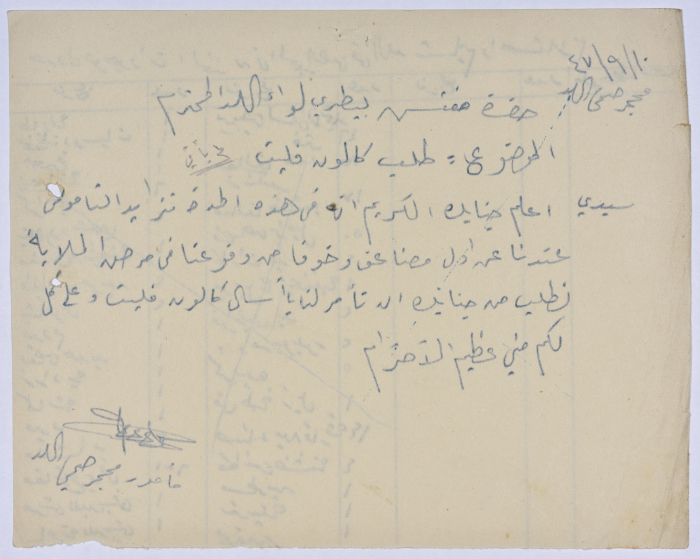 ٤٧/٩/١٠
محجر صحي اللد
حضرة مفتش بيطري لواء اللد المحترم
الموضوع = طلب كالون فليت
سيدي اعلم جنابك الكريم انه في هذه المدة تزايد الناموس
عندنا عن اول مضاعف وخوفا من وقوعنا في مرض الملاريا
نطلب من جنابك ان تأمر لنا بأرسال كالون فليت وعلى كل
لكم مني عظيم الاحترام
مأمور محجر صحي اللد